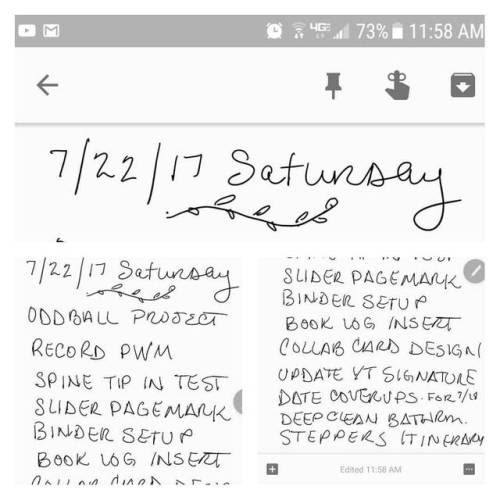 4GE 73% 11:58 AM
7/22/17 Saturday
7/22/17 Saturday
ODDBALL PROJECT
RECORD PWM
SPINE TIP IN TEST
SLIDER PAGEMARK
BINDER SETUP
BOOK LOG INSERT
SPINE TIP IN TEST
SLIDER PAGEMARK
BINDER SETUP
BOOK LOG INSERT
COLLAB CARD DESIGN
UPDATE YT SIGNATURE
DATE COVERUPS. FOR 7/18
DEEPCLEAN BATHRM.
STEPPERS ITINERARY
Edited 11:58 AM